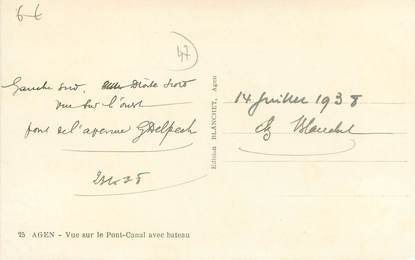 6€
47
Gauche sud, Droite Nord
vue sur l'ouest
pont de l'avenue G Delpech
14 Juillet 1938
Ch Blanchet
Edition BLANCHET, Agen
25 AGEN - Vue sur le Pont-Canal avec bateau